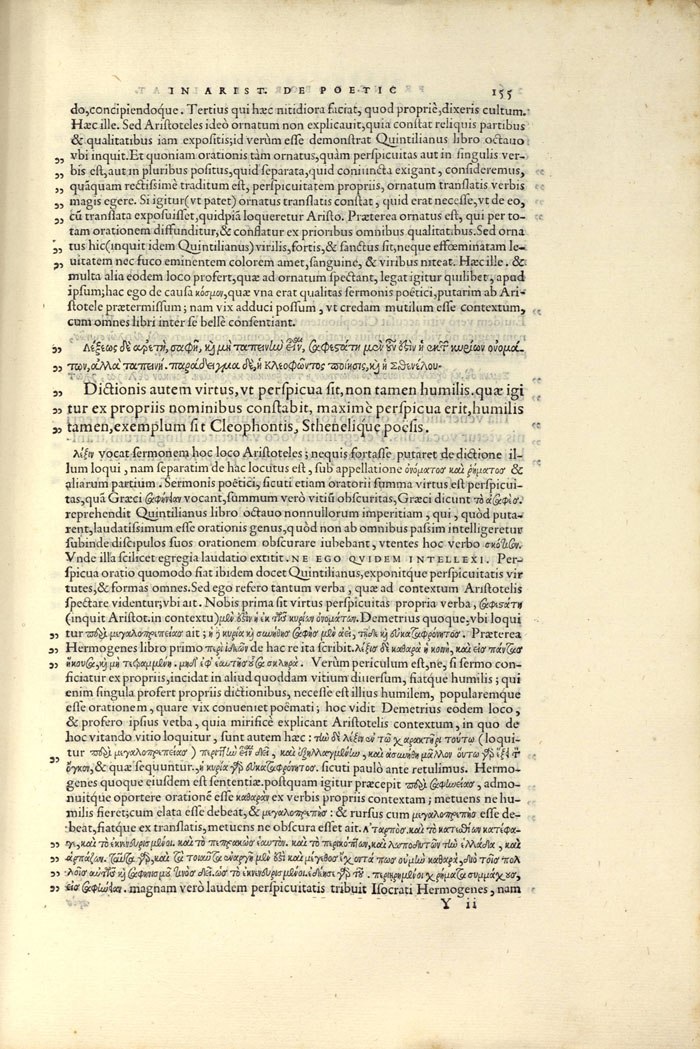 IN ARIST. DE POETIC 155
do, concipiendoque. Tertius qui hæc nitidiora faciat, quod propriè, dixeris cultum.
Hæc ille. Sed Aristoteles ideò ornatum non explicauit, quia constat reliquis partibus
& qualitatibus iam expositis; id verùm esse demonstrat Quintilianus libro octauo
„ vbi inquit. Et quoniam orationis tàm ornatus, quàm perspicuitas aut in singulis ver-
„ bis est, aut in pluribus positus, quid separata, quid coniuncta exigant, consideremus,
„ quāquam rectissimè traditum est, perspicuitatem propriis, ornatum translatis verbis
„ magis egere. Si igitur (vt patet) ornatus translatis constat, quid erat necesse, vt de eo,
„ cū translata exposuisset, quidpiā loqueretur Aristo. Præterea ornatus est, qui per to-
tam orationem diffunditur, & conflatur ex prioribus omnibus qualitatibus. Sed orna
„ tus hic (inquit idem Quintilianus) virilis, fortis, & sanctus sit, neque effœminatam le-
„ uitatem nec fuco eminentem colorem amet, sanguine, & viribus niteat. Hæc ille. &
multa alia eodem loco profert, quæ ad ornatum spectant, legat igitur quilibet, apud
ipsum; hac ego de causa κόσμον, quæ vna erat qualitas sermonis poëtici, putarim ab Ari-
stotele prætermissum; nam vix adduci possum, vt credam mutilum esse contextum,
cum omnes libri inter se bellè consentiant.
„ Λέξεως δὲ ἀρετὴ, σαφῆ, καὶ μὴ ταπεινὴν εἶναι, σαφεστάτη μὲν οὖν ἐστὶν ἡ ἐκ τῶν κυρίων ὀνομά-
„ των, ἀλλὰ ταπεινή. παράδειγμα δὲ, ἡ Κλεοφῶντος ποίησις, καὶ ἡ Σθενέλου.
„ Dictionis autem virtus, vt perspicua sit, non tamen humilis. quæ igi
„ tur ex propriis nominibus constabit, maximè perspicua erit, humilis
„ tamen, exemplum sit Cleophontis, Sthenelique poësis.
λέξιν vocat sermonem hoc loco Aristoteles; nequis fortasse putaret de dictione il-
lum loqui, nam separatim de hac locutus est, sub appellatione ὀνόματος καὶ ῥήματος &
aliarum partium. Sermonis poëtici, sicuti etiam oratorii summa virtus est perspicui-
tas, quā Græci σαφήνειαν vocant, summum verò vitiū obscuritas, Græci dicunt τὸ ἀσαφές.
reprehendit Quintilianus libro octauo nonnullorum imperitiam, qui, quòd puta-
rent, laudatissimum esse orationis genus, quòd non ab omnibus passim intelligeretur
subinde discipulos suos orationem obscurare iubebant, vtentes hoc verbo σκότισον.
Vnde illa scilicet egregia laudatio extitit. NE EGO QVIDEM INTELLEXI. Per-
spicua oratio quomodo fiat ibidem docet Quintilianus, exponitque perspicuitatis vir
tutes, & formas omnes. Sed ego refero tantum verba, quæ ad contextum Aristotelis
spectare videntur; vbi ait. Nobis prima sit virtus perspicuitas propria verba, σαφεστάτη
(inquit Aristot. in contextu) μὲν ἐστὶν ἡ ἐκ τῶν κυρίων ὀνομάτων. Demetrius quoque, vbi loqui
„ tur περὶ μεγαλοπρεπείας ait; ἡ γὰρ κυρία καὶ συνήθης σαφὴς μὲν ἀεὶ, τῇδε καὶ εὐκαταφρόνητος. Præterea
„ Hermogenes libro primo περὶ ἰδεῶν de hac re ita scribit. λέξις δὲ καθαρὰ ἡ κοινὴ, καὶ εἰς πάντας
„ ἥκουσα, καὶ μὴ τετραμμένη. μηδ' ἐφ' ἑαυτῆς οὖσα σκληρά. Verùm periculum est, ne, si sermo con-
ficiatur ex propriis, incidat in aliud quoddam vitium diuersum, fiatque humilis; qui
enim singula profert propriis dictionibus, necesse est illius humilem, popularemque
esse orationem, quare vix conueniet poëmati; hoc vidit Demetrius eodem loco,
& profero ipsius verba, quia mirificè explicant Aristotelis contextum, in quo de
hoc vitando vitio loquitur, sunt autem hæc: τὴν δὲ λέξιν ἐν τῷ χαρακτῆρι τούτῳ (loqui-
„ tur περὶ μεγαλοπρεπείας) περιττὴν εἶναι δεῖ, καὶ ἐξηλλαγμένην, καὶ ἀσυνήθη μᾶλλον οὕτω γὰρ ἕξει τ
ὄγκον, & quæ sequuntur. ἡ κυρία γὰρ εὐκαταφρόνητος. sicuti paulò ante retulimus. Hermo-
genes quoque eiusdem est sententiæ. postquam igitur præcepit περὶ σαφηνείας, admo-
nuitque oportere orationē esse καθαρὰν ex verbis propriis contextam; metuens ne hu-
milis fieret; cum elata esse debeat, & μεγαλοπρεπὴς: & rursus cum μεγαλοπρεπὴς esse de-
beat, fiatque ex translatis, metuens ne obscura esset ait.
magnam verò laudem perspicuitatis tribuit Isocrati Hermogenes, nam
Y ii